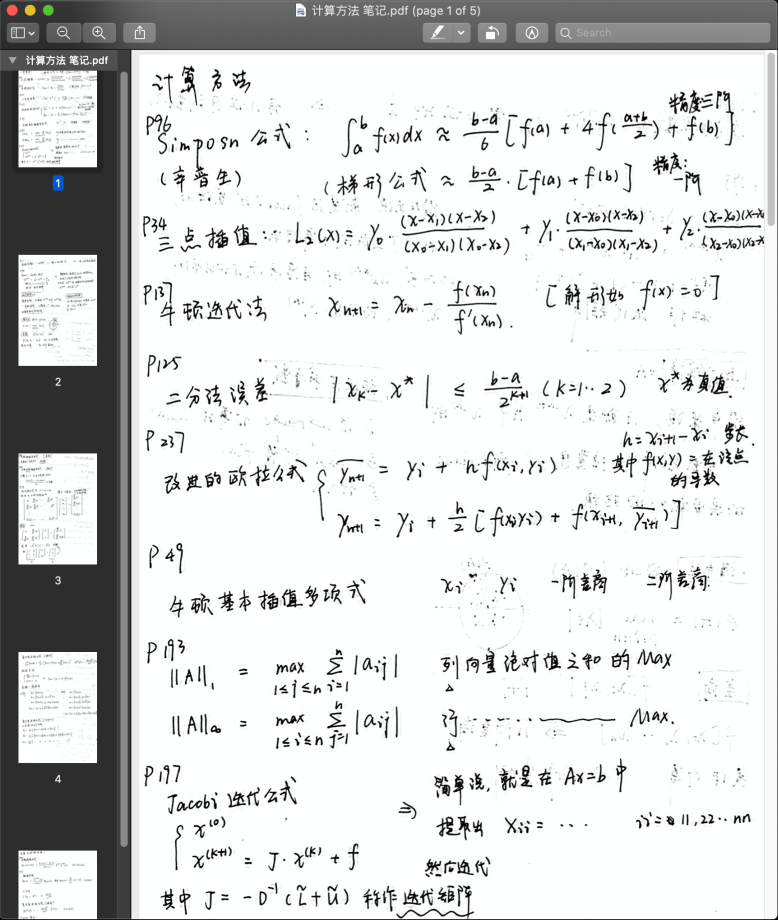 计算方法 笔记.pdf (page 1 of 5)
Search
计算方法 笔记.pdf
1
2
3
4
计算方法
P96
精度三阶
Simposn 公式: ∫_a^b f(x)dx ≈ (b-a)/6 [f(a) + 4f((a+b)/2) + f(b)]
(辛普生) (梯形公式 ≈ (b-a)/2 · [f(a) + f(b)] 精度: 一阶
P34
三点插值: L₂(x) = y₀ · (x-x₁)(x-x₂)/(x₀-x₁)(x₀-x₂) + y₁ · (x-x₀)(x-x₂)/(x₁-x₀)(x₁-x₂) + y₂ · (x-x₀)(x-x₁)/(x₂-x₀)(x₂-x
P137
牛顿迭代法 x_{n+1} = x_n - f(x_n)/f'(x_n). [解形如 f(x)=0]
P125
二分法误差 |x_k - x*| ≤ (b-a)/2^{k+1} (k=1··2) x*为真值.
P237
h = x_{i+1} - x_i 步长.
改进的欧拉公式 { \overline{y_{n+1}} = y_i + hf(x_i, y_i) 其中 f(x,y) = 在该点的导数
y_{n+1} = y_i + h/2 [f(x_i y_i) + f(x_{i+1}, \overline{y_{i+1}})]
P49
牛顿基本插值多项式 x_i y_i 一阶差商 二阶差商.
P193
||A||₁ = max_{1≤j≤n} Σ_{i=1}^n |a_{ij}| 列向量绝对值之和的 Max
||A||∞ = max_{1≤i≤n} Σ_{j=1}^n |a_{ij}| 行 ······ Max.
P197
Jacobi 迭代公式 ⇒ 简单说, 就是在 Ax=b 中
{ x^{(0)} 提取出 X_{ii} = ··· ii = 11, 22 ·· nn
x^{(k+1)} = J · x^{(k)} + f 然后迭代
其中 J = -D^{-1}(L̃+Ũ) 称作迭代矩阵